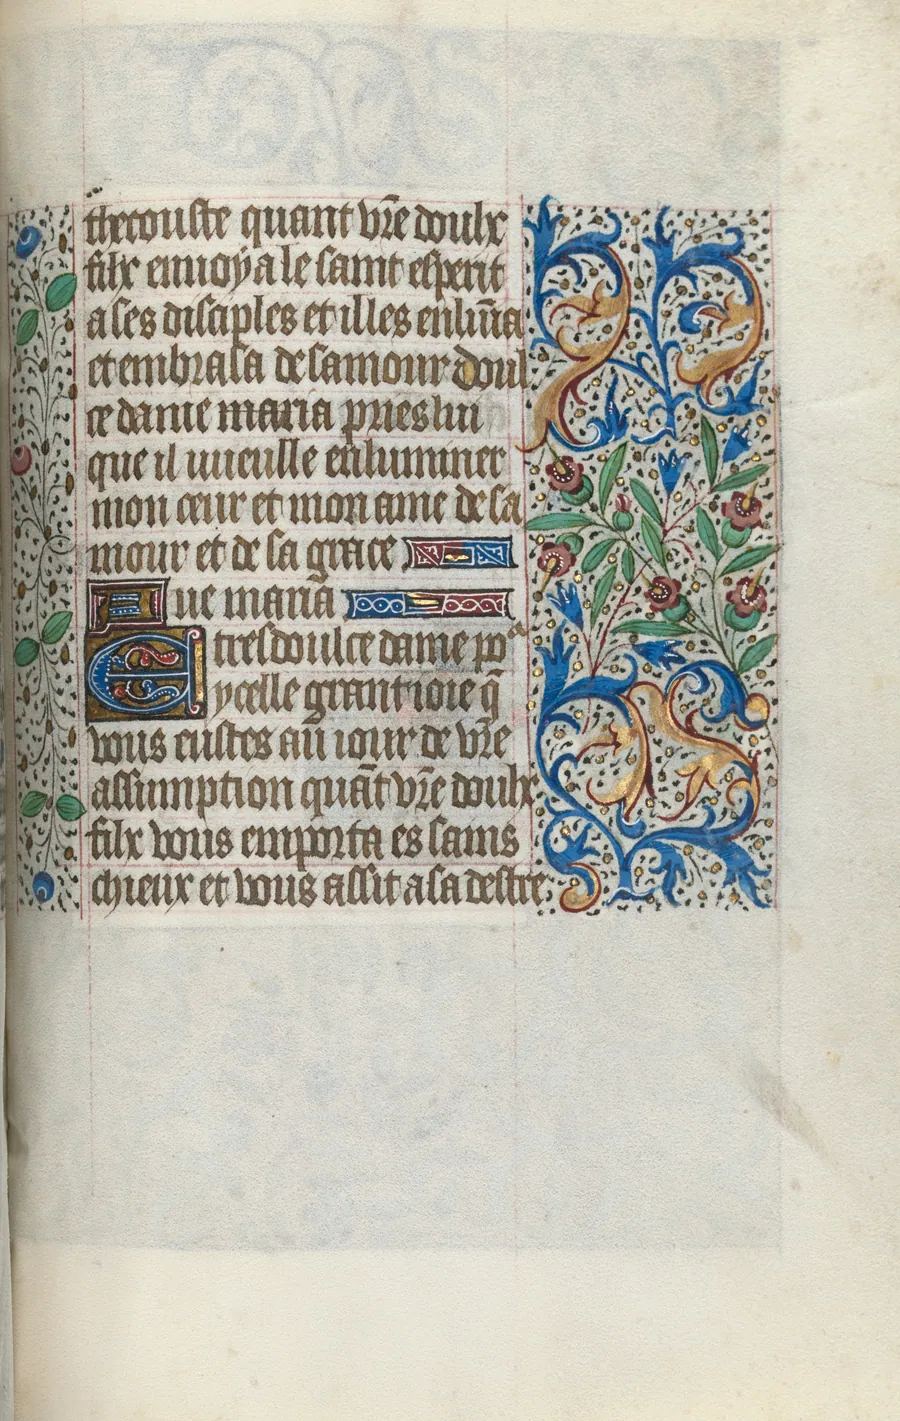 thecouste quant vr̄e doulx
filx envoya le saint esperit
a ses disciples et illes enlūīa
et embrasa de samour doul
ce dame maria pries lui
que il vueulle enluminer
mon cœur et mon ame de sa
mour et de sa grace
Aue maria
E tresdoulce dame poᵃ
ycelle grant ioie q̄
vous eustes au iour de vr̄e
assumption quāt vr̄e doulx
filx vous emporta es sains
chieux et vous assit a sa destre